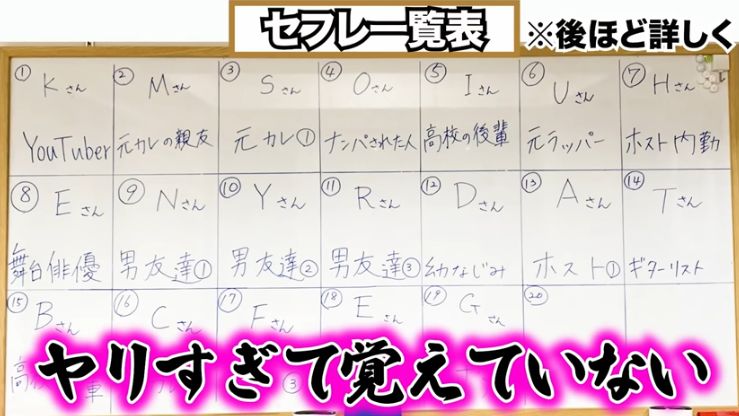 セフレ一覧表
※後ほど詳しく
① Kさん ② Mさん ③ Sさん ④ Oさん ⑤ Iさん ⑥ Uさん ⑦ Hさん
YouTuber 元カレの親友 元カレ① ナンパされた人 高校の後輩 元ラッパー ホスト内勤
⑧ Eさん ⑨ Nさん ⑩ Yさん ⑪ Rさん ⑫ Dさん ⑬ Aさん ⑭ Tさん
舞台俳優 男友達① 男友達② 男友達③ 幼なじみ ホスト① ギターリスト
⑮ Bさん ⑯ Cさん ⑰ Fさん ⑱ Eさん ⑲ Gさん ⑳
ヤリすぎて覚えていない